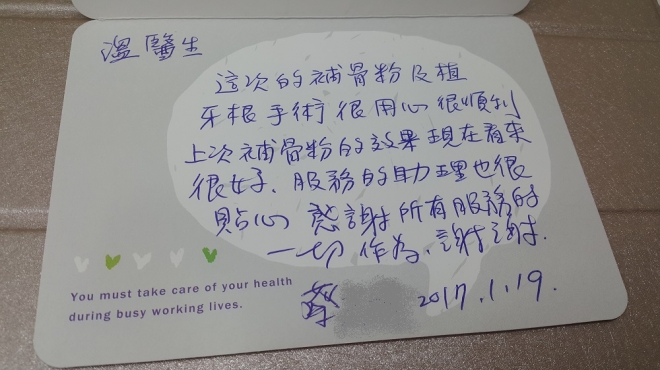 溫醫生
這次的補骨粉及植
牙根手術很用心很順利
上次補骨粉的效果現在看來
很好、服務的助理也很
貼心 感謝所有服務的
一切作為、謝謝.
蔡
2017.1.19.
You must take care of your health
during busy working lives.